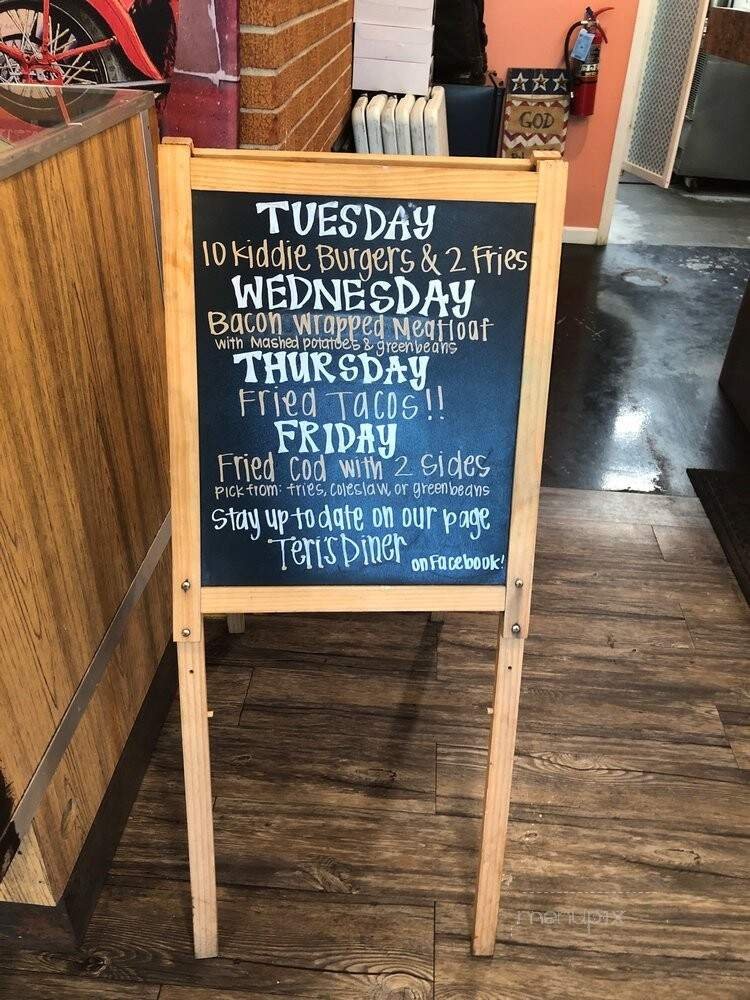 GOD
TUESDAY
10 Kiddie Burgers & 2 Fries
WEDNESDAY
Bacon Wrapped Meatloaf
with Mashed potatoes & greenbeans
THURSDAY
Fried Tacos!!
FRIDAY
Fried Cod with 2 Sides
Pick from: fries, coleslaw, or greenbeans
Stay up to date on our page
Teri's Diner
on Facebook!
menupix